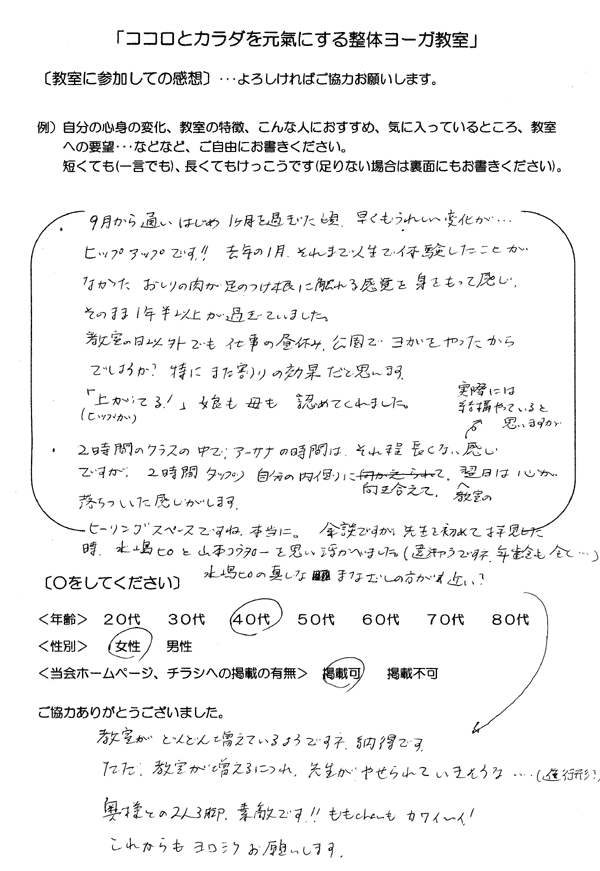 「ココロとカラダを元氣にする整体ヨーガ教室」
〔教室に参加しての感想〕・・・よろしければご協力お願いします。
例）自分の心身の変化、教室の特徴、こんな人におすすめ、気に入っているところ、教室
への要望・・・などなど、ご自由にお書きください。
短くても(一言でも)、長くてもけっこうです(足りない場合は裏面にもお書きください)。
・9月から通いはじめ 1ヶ月を過ぎた頃、早くもうれしい変化が…
ヒップアップです!! 去年の1月、それまで人生で体験したことが
なかった おしりの肉が足のつけ根に触れる感覚を身をもって感じ、
そのまま1年半以上が過ぎていました。
教室の日以外でも 仕事の昼休み、公園で ヨガをやったから
でしょうか? 特に また割りの効果だと思います。
「上がってる!」娘も母も 認めてくれました。
(ヒップが)
実際には
結構やっていると
思いますが
・2時間のクラスの中で、アーサナの時間は、それ程 長くない感じ
ですが、2時間 タップリ 自分の内側に向かえられて、翌日は心が
向き合えて、
教室の
落ちついた感じがします。
ヒーリングスペースですね、本当に。 余談ですが、先生を初めて拝見した
時、水嶋ヒロと山本コウタローを思い浮かべました(違うですネ、年齢も全て…)
水嶋ヒロの真しなまなざしの方が近い?
〔○をしてください〕
＜年齢＞ 20代 30代 40代 50代 60代 70代 80代
＜性別＞ 女性 男性
＜当会ホームページ、チラシへの掲載の有無＞ 掲載可 掲載不可
ご協力ありがとうございました。
教室が どんどん増えているようですネ、納得です。
ただ、教室が増えるにつれ、先生がやせられていきそうな…(進行形?)
奥様との2人3脚、素敵です!! ももchanも カワイーイ!
これからも ヨロシク お願いします。